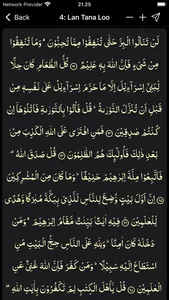 Network Provider
21.25
Back
4: Lan Tana Loo
لَنْ تَنَالُوا الْبِرَّ حَتّٰى تُنْفِقُوْا مِمَّا تُحِبُّوْنَ ۚ وَمَا تُنْفِقُوْا
مِنْ شَيْءٍ فَاِنَّ اللّٰهَ بِهٖ عَلِيْمٌ ۞ كُلُّ الطَّعَامِ كَانَ
حِلًّا لِّبَنِيْٓ اِسْرَآءِيْلَ اِلَّا مَا حَرَّمَ اِسْرَآءِيْلُ عَلٰى نَفْسِهٖ مِنْ
قَبْلِ اَنْ تُنَزَّلَ التَّوْرٰىةُ ۗ قُلْ فَأْتُوْا بِالتَّوْرٰىةِ فَاتْلُوْهَآ اِنْ
كُنْتُمْ صٰدِقِيْنَ ۞ فَمَنِ افْتَرٰى عَلَى اللّٰهِ الْكَذِبَ مِنْۢ
بَعْدِ ذٰلِكَ فَاُولٰٓئِكَ هُمُ الظّٰلِمُوْنَ ۞ قُلْ صَدَقَ اللّٰهُ ۗ
فَاتَّبِعُوْا مِلَّةَ اِبْرٰهِيْمَ حَنِيْفًا ۗ وَمَا كَانَ مِنَ الْمُشْرِكِيْنَ ۞
اِنَّ اَوَّلَ بَيْتٍ وُّضِعَ لِلنَّاسِ لَلَّذِيْ بِبَكَّةَ مُبٰرَكًا وَّهُدًى
لِّلْعٰلَمِيْنَ ۞ فِيْهِ اٰيٰتٌۢ بَيِّنٰتٌ مَّقَامُ اِبْرٰهِيْمَ ۚ وَمَنْ
دَخَلَهٗ كَانَ اٰمِنًا ۗ وَلِلّٰهِ عَلَى النَّاسِ حِجُّ الْبَيْتِ مَنِ
اسْتَطَاعَ اِلَيْهِ سَبِيْلًا ۗ وَمَنْ كَفَرَ فَاِنَّ اللّٰهَ غَنِيٌّ عَنِ
الْعٰلَمِيْنَ ۞ قُلْ يٰٓاَهْلَ الْكِتٰبِ لِمَ تَكْفُرُوْنَ بِاٰيٰتِ